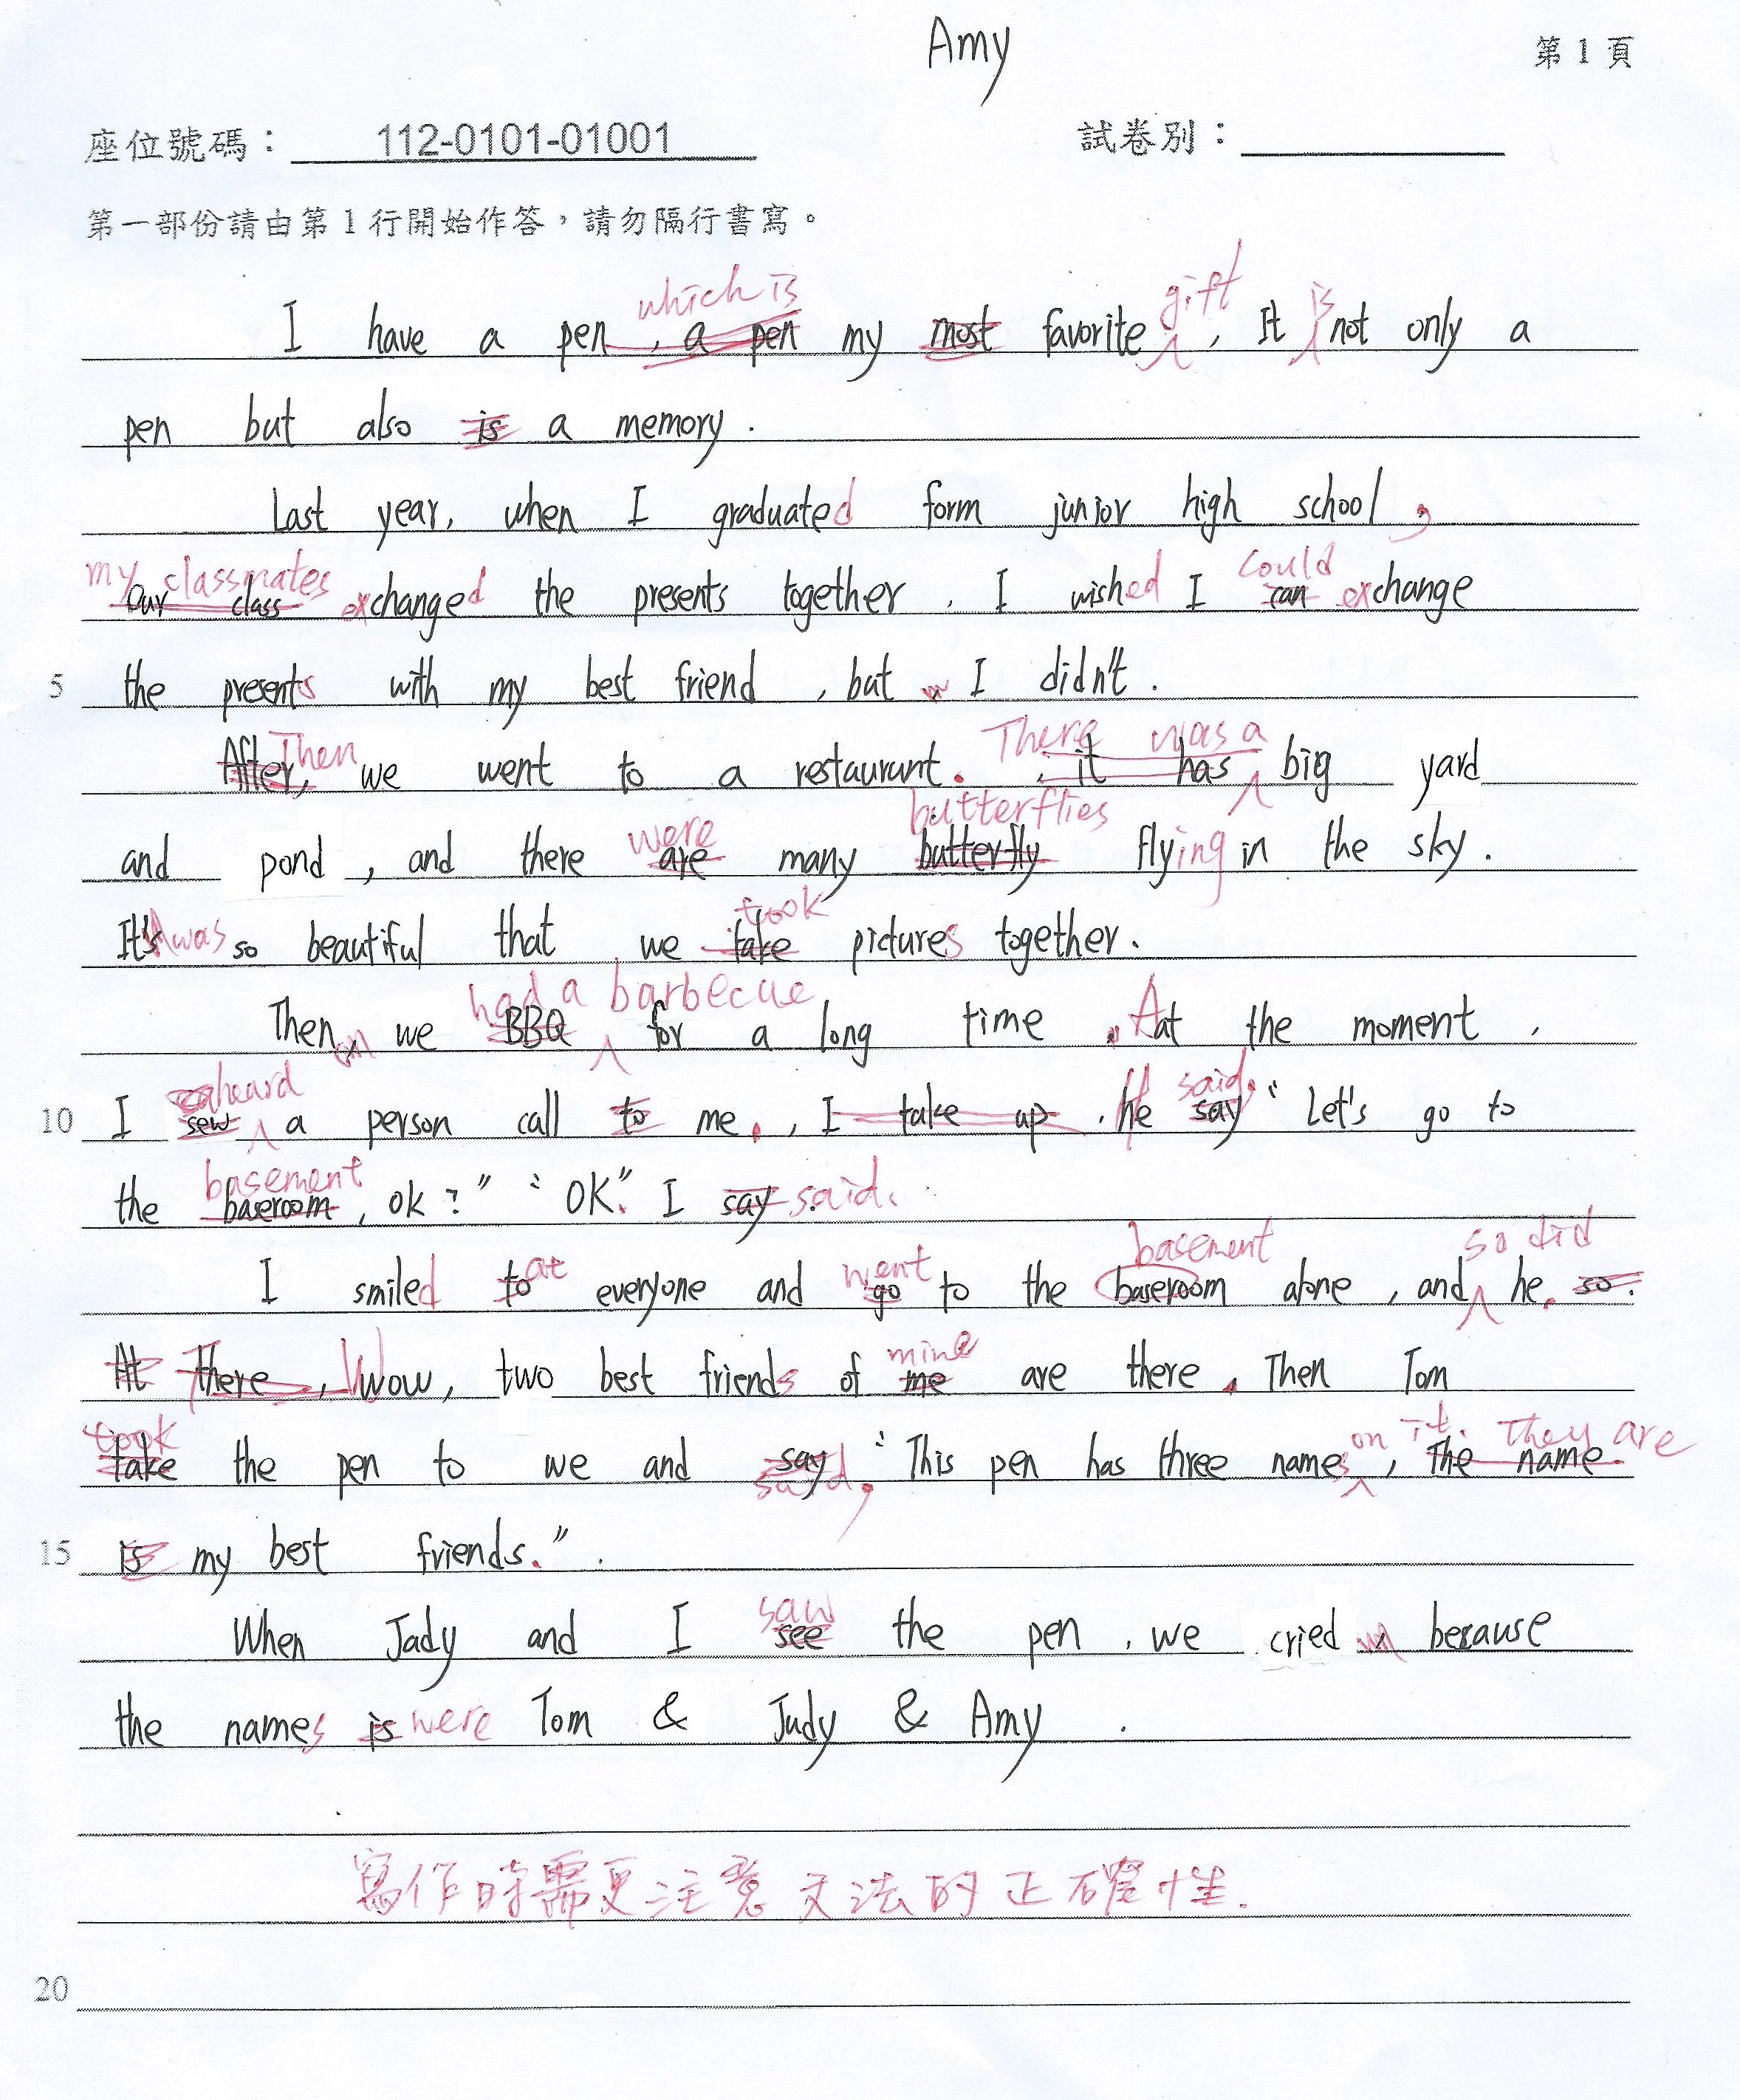 Amy
第 1 頁
座位號碼： 112-0101-01001 試卷別：
第一部份請由第 1 行開始作答，請勿隔行書寫。
which is gift is
I have a pen , a pen my most favorite , It not only a
pen but also is a memory .
Last year, when I graduated form junior high school ,
my classmates could
Our class exchanged the presents together . I wished I can exchange
5 the presents with my best friend , but I didn't .
Then There was a
After, we went to a restaurant . , it has big yard
were butterflies
and pond , and there are many butterfly flying in the sky .
took
It's was so beautiful that we take pictures together .
had a barbecue
Then, we BBQ for a long time . At at the moment ,
heard said,
10 I sew a person call to me . , I take up . He he say " Let's go to
basement
the baseroom , ok ? " " OK." I say said.
at went basement so did
I smiled to everyone and go to the baseroom alone , and he . so .
mine
At There , Wow, two best friends of me are there . Then Tom
took on it. They are
take the pen to we and say said, " This pen has three names , The name
15 is my best friends. " .
saw
When Jady and I see the pen , we cried because
the names is were Tom & Judy & Amy .
寫作時需更注意文法的正確性.
20